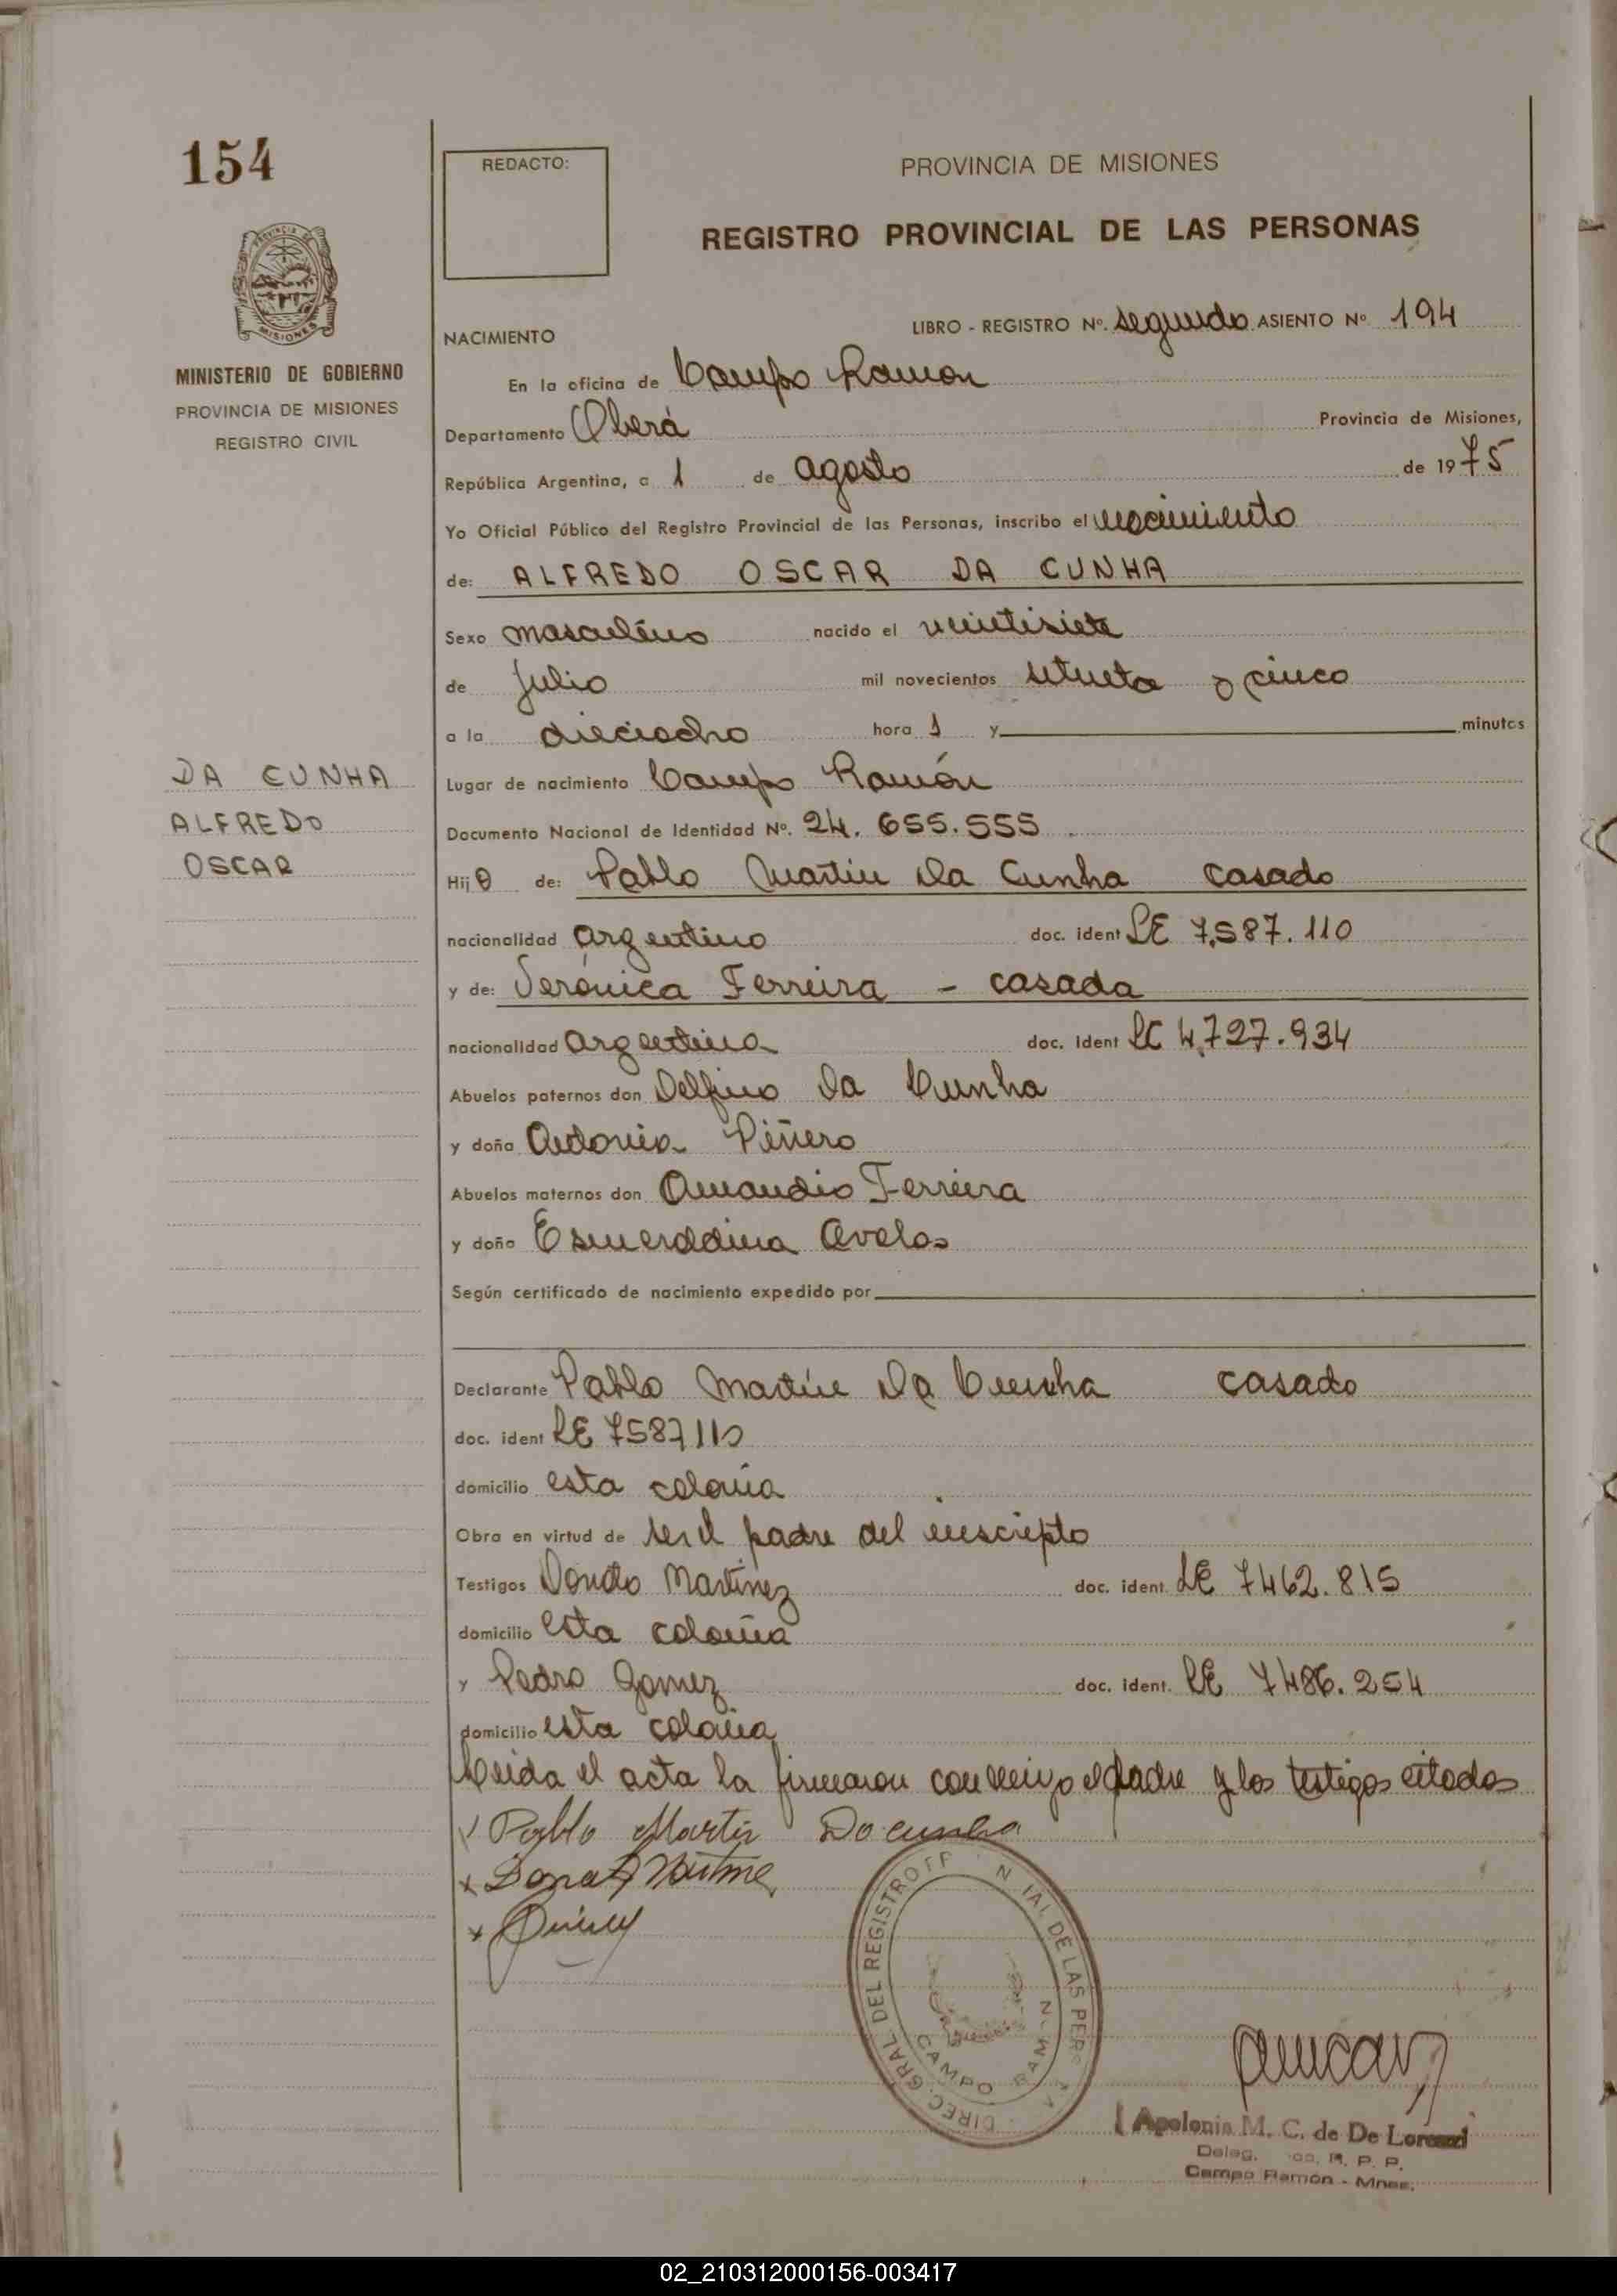 154
REDACTO:
PROVINCIA DE MISIONES
REGISTRO PROVINCIAL DE LAS PERSONAS
MISIONES
MINISTERIO DE GOBIERNO
PROVINCIA DE MISIONES
REGISTRO CIVIL
DA CUNHA
ALFREDO
OSCAR
LIBRO - REGISTRO Nº. segundo ASIENTO Nº 194
NACIMIENTO
En la oficina de Campo Ramon
Departamento Oberá Provincia de Misiones,
República Argentina, a 1 de agosto de 1975
Yo Oficial Público del Registro Provincial de las Personas, inscribo el nacimiento
de: ALFREDO OSCAR DA CUNHA
Sexo masculino nacido el veintisiete
de julio mil novecientos setenta y cinco
a la dieciocho hora 1 y minutos
Lugar de nacimiento Campo Ramón
Documento Nacional de Identidad Nº. 24.655.555
Hijo de: Pablo Martin Da Cunha casado
nacionalidad argentino doc. ident LE 7.587.110
y de: Verónica Ferreira - casada
nacionalidad argentina doc. ident LC 4.727.934
Abuelos paternos don Delfino Da Cunha
y doña Antonia Piñero
Abuelos maternos don Amandio Ferreira
y doña Esmeraldina Avelos
Según certificado de nacimiento expedido por
Declarante Pablo Martín Da Cunha casado
doc. ident LE 7587110
domicilio esta colonia
Obra en virtud de ser el padre del inscripto
Testigos Donato Martinez doc. ident. LE 7462.815
domicilio esta colonia
y Pedro Gomez doc. ident. LE 7486.254
domicilio esta colonia
Leida el acta la firmaron conmigo el padre y los testigos citados
Pablo Martin Da cunha
DIREC. GRAL DEL REGISTRO DE LAS PER
CAMPO RAMON
Apolonia M. C. de De Lorenzi
Deleg. R. P. P.
Campo Ramón - Mnes.
02_210312000156-003417